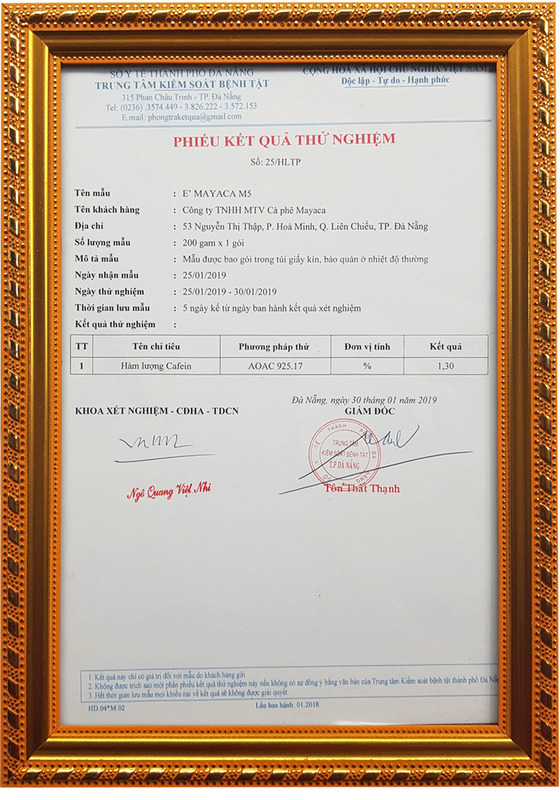 SỞ Y TẾ THÀNH PHỐ ĐÀ NẴNG
TRUNG TÂM KIỂM SOÁT BỆNH TẬT
315 Phan Châu Trinh - TP. Đà Nẵng
Tel: (0236) .3574.449 - 3.826.222 - 3.572.153
E.mail: phongtraketqua@gmail.com
CỘNG HÒA XÃ HỘI CHỦ NGHĨA VIỆT NAM
Độc lập - Tự do - Hạnh phúc
PHIẾU KẾT QUẢ THỬ NGHIỆM
Số: 25/HLTP
Tên mẫu : E' MAYACA M5
Tên khách hàng : Công ty TNHH MTV Cà phê Mayaca
Địa chỉ : 53 Nguyễn Thị Thập, P. Hoà Minh, Q. Liên Chiểu, TP. Đà Nẵng
Số lượng mẫu : 200 gam x 1 gói
Mô tả mẫu : Mẫu được bao gói trong túi giấy kín, bảo quản ở nhiệt độ thường
Ngày nhận mẫu : 25/01/2019
Ngày thử nghiệm : 25/01/2019 - 30/01/2019
Thời gian lưu mẫu : 5 ngày kể từ ngày ban hành kết quả xét nghiệm
Kết quả thử nghiệm :
TT Tên chỉ tiêu Phương pháp thử Đơn vị tính Kết quả
1 Hàm lượng Cafein AOAC 925.17 % 1,30
Đà Nẵng, ngày 30 tháng 01 năm 2019
KHOA XÉT NGHIỆM - CĐHA - TDCN
GIÁM ĐỐC
TRUNG TÂM
KIỂM SOÁT BỆNH TẬT
T.P ĐÀ NẴNG
Ngô Quang Việt Nhi
Tôn Thất Thạnh
1. Kết quả này chỉ có giá trị đối với mẫu do khách hàng gửi.
2. Không được trích sao một phần phiếu kết quả thử nghiệm này nếu không có sự đồng ý bằng văn bản của Trung tâm Kiểm soát bệnh tật thành phố Đà Nẵng
3. Hết thời gian lưu mẫu mọi khiếu nại về kết quả sẽ không được giải quyết.
HD.04*M.02
Lần ban hành: 01.2018